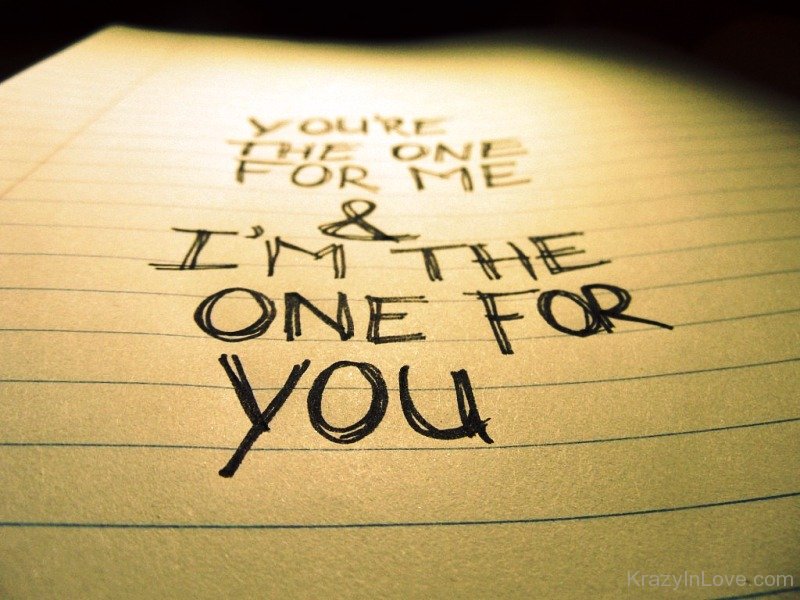 YOU'RE
THE ONE
FOR ME
&
I'M THE
ONE FOR
YOU
KrazyInLove.com